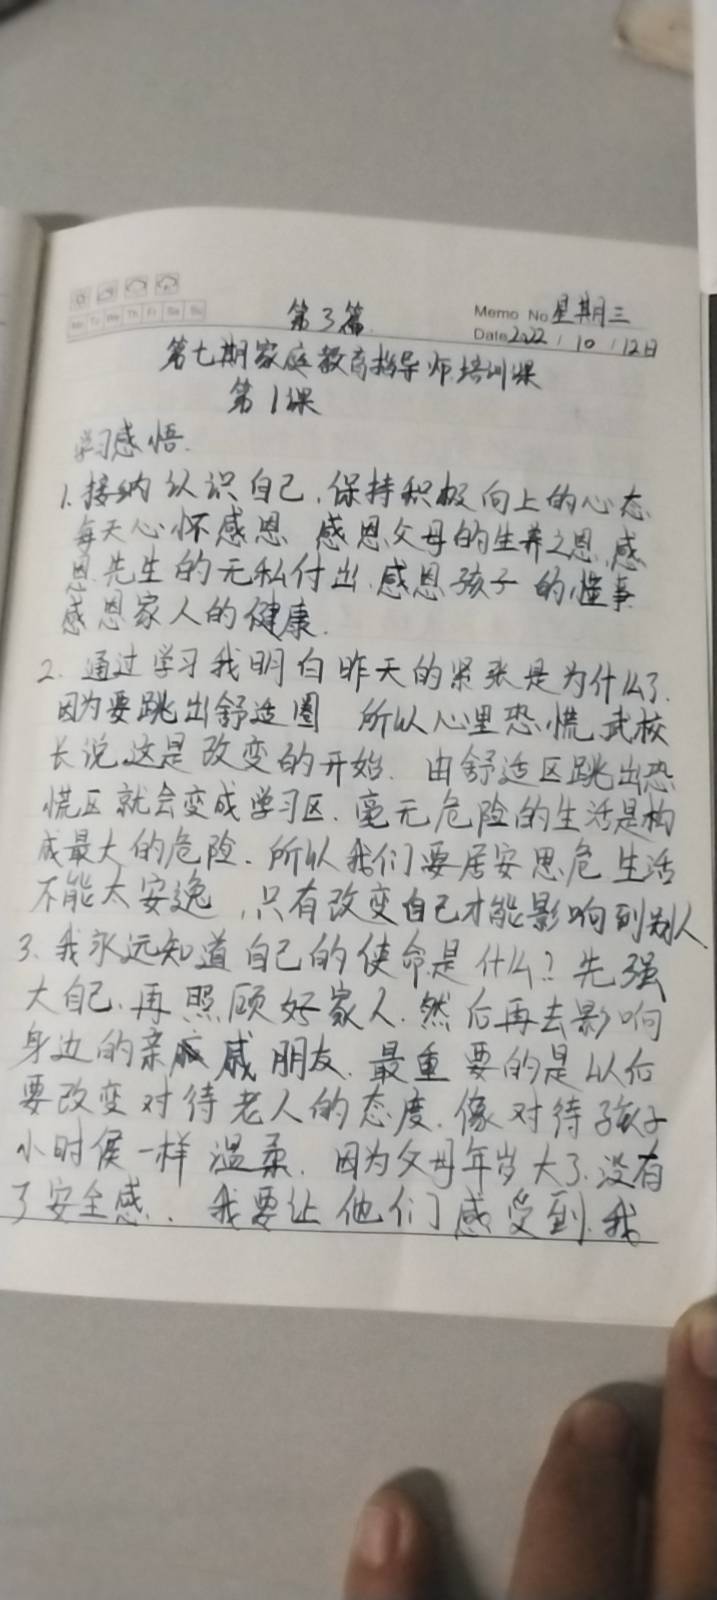 Mo Tu We Th Fr Sa Su
第3篇
Memo No 星期三
Date 2022 / 10 / 12日
第七期家庭教育指导师培训课
第1课
学习感悟.
1.接纳认识自己,保持积极向上的心态
每天心怀感恩 感恩父母的生养之恩,感
恩先生的无私付出,感恩孩子的懂事
感恩家人的健康.
2. 通过学习我明白昨天的紧张是为什么了.
因为要跳出舒适圈 所以心里恐慌,武校
长说,这是改变的开始. 由舒适区跳出恐
慌区就会变成学习区. 毫无危险的生活是构
成最大的危险. 所以我们要居安思危 生活
不能太安逸 ,只有改变自己才能影响到别人.
3. 我永远知道自己的使命是什么? 先强
大自己,再照顾好家人.然后再去影响
身边的亲戚朋友. 最重要的是以后
要改变对待老人的态度.像对待孩子
小时侯一样温柔. 因为父母年岁大了.没有
了安全感. 我要让他们感受到,我